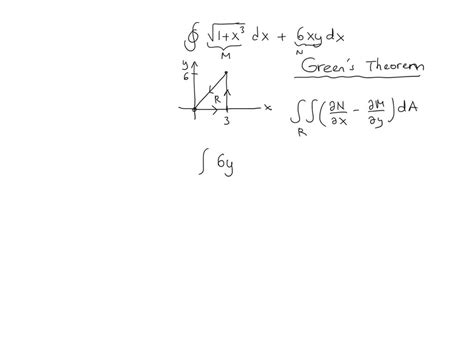 ∮ √(1+x³) dx + 6xy dx
M N
Green's Theorem
y
6
R
x
3
∫∫ (∂N/∂x − ∂M/∂y) dA
R
∫ 6y